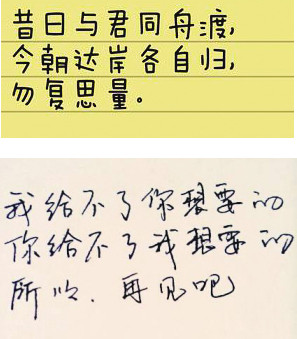 昔日与君同舟渡,
今朝达岸各自归,
勿复思量。
我给不了你想要的
你给不了我想要的
所以.再见吧